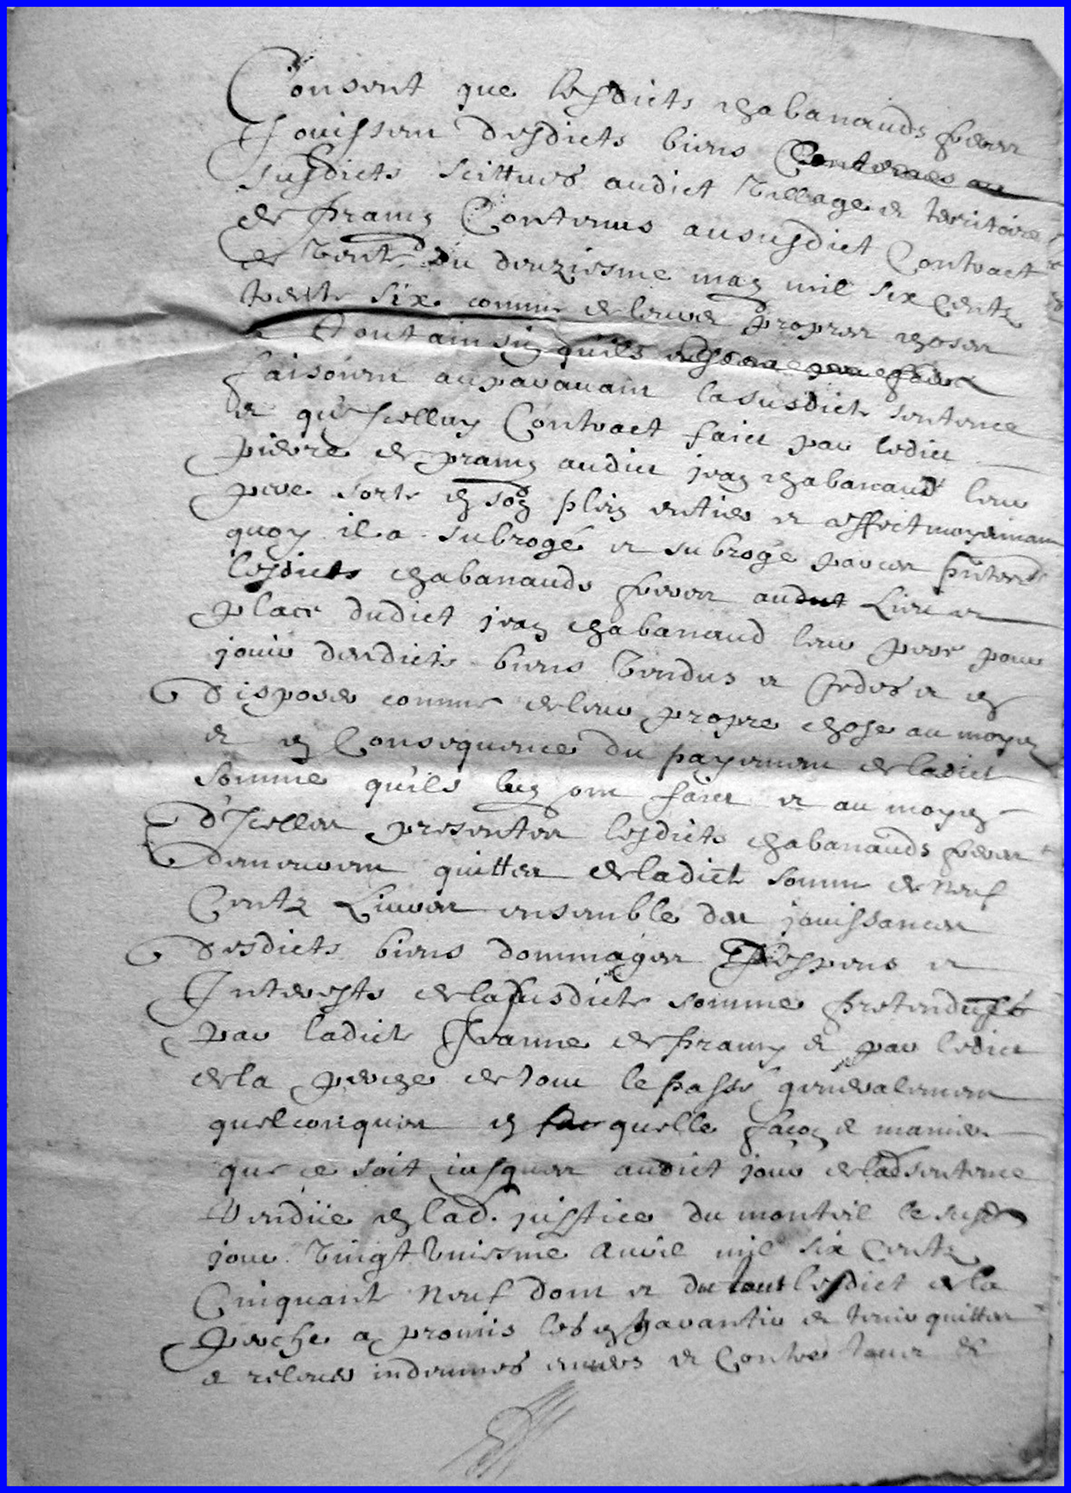 Consent que lesdicts chabanauds freres
Jouissent desdicts biens
susdicts scittues audict Village et territoire
de framy Contenus ausuSdict Contract
de Vente du douziesme may mil six Centz
trente six comme de leures propres choses
et Tout ainsiy quils
faisoient aupavavant lasusdicte sentence
et qu'Jcelluy Contract faict par ledict
pierre de framy audict jean chabanaud leur
pere sorte en son plein entier et effect moyennant
quoy il a subrogé et subroge par ces presentes
lesdicts chabanauds freres audict Lieu et
place dudict jean chabanaud leur pere pour
jouir desdicts biens Vendus et cedes et en
disposer comme de leur propre chose au moyen
et en Consequence du payement de ladict
somme quils luy ont faict et au moyen
d'Jcelles presentes lesdicts chabanauds freres
demeurent quittes de ladict somme de neuf
Centz Livres ensemble des jouissances
desdicts biens dommages despens et
Interests de lasusdicte somme pretendues
par ladicte Jeanne de framy et par ledict
de la perche de tout le passé generalement
quelconques en quelle façon et maniere
que ce soit jusques audict jour de lad sentence
Rendüe en lad. justice du monteil le susd
jour Vingt Vniesme auril mil six Centz
Cinquante neuf dont et du tout lesdict de la
perche a promis les en garantir et tenir quittes
et releues indemnes enuers et Contre tous et